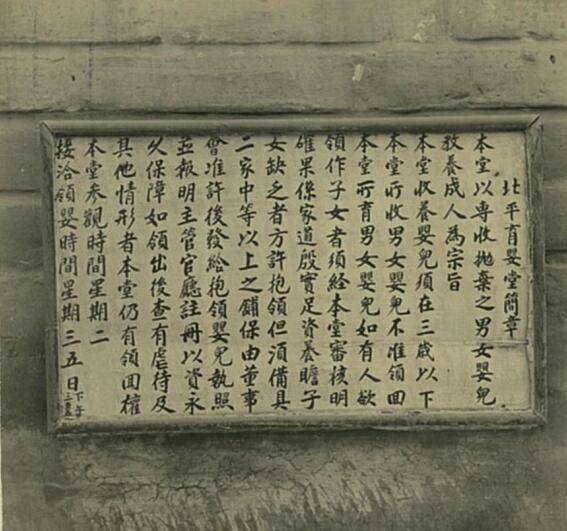 北平育嬰堂簡章
本堂以專收抛棄之男女嬰兒
教養成人為宗旨
本堂收養嬰兒須在三歲以下
本堂所收男女嬰兒不准領回
本堂所育男女嬰兒如有人欲
領作子女者須經本堂審核明
確果係家道殷實足資養贍子
女缺乏者方許抱領但須備具
二家中等以上之鋪保由董事
會准許後發給抱領嬰兒執照
並報明主管官廳註冊以資永
久保障如領出後查有虐待及
其他情形者本堂仍有領回權
本堂參觀時間星期二
接洽領嬰時間星期三五日下午